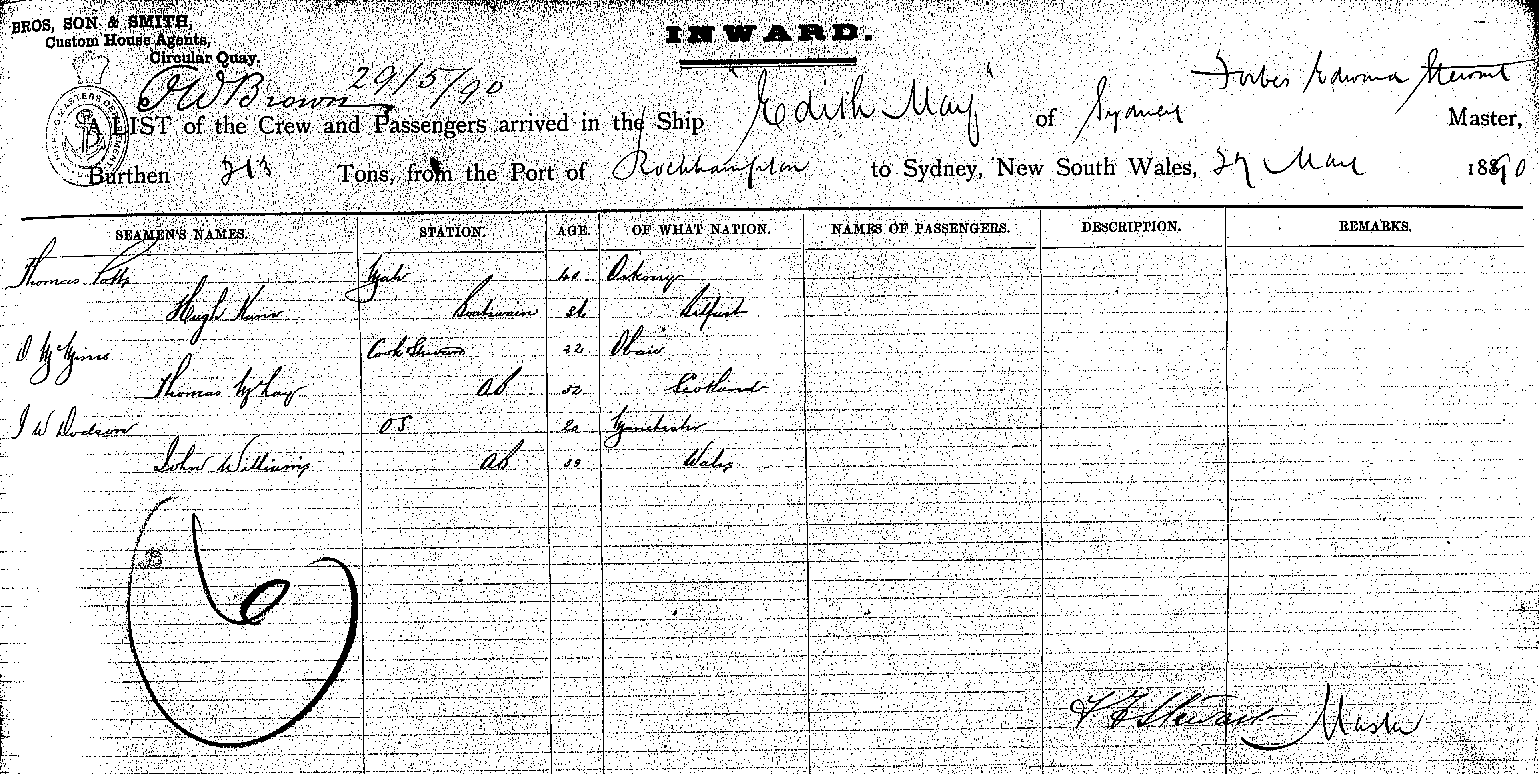 BROS, SON & SMITH,
Custom House Agents,
Circular Quay.
INWARD.
JW Brown 29/5/90
Forbes Edward Stewart
A LIST of the Crew and Passengers arrived in the Ship "Edith May" of Sydney Master,
Burthen 213 Tons, from the Port of Rockhampton to Sydney, New South Wales, 29 May 1890
SEAMEN'S NAMES. STATION. AGE OF WHAT NATION. NAMES OF PASSENGERS. DESCRIPTION. REMARKS.
Thomas Potts Mate 40 Orkney
Hugh Boatswain Belfast
D 22
Thomas McKay AB Scotland
J W Dodson OS 20 Manchester
John Williams AB Wales
6
F E Stewart Master